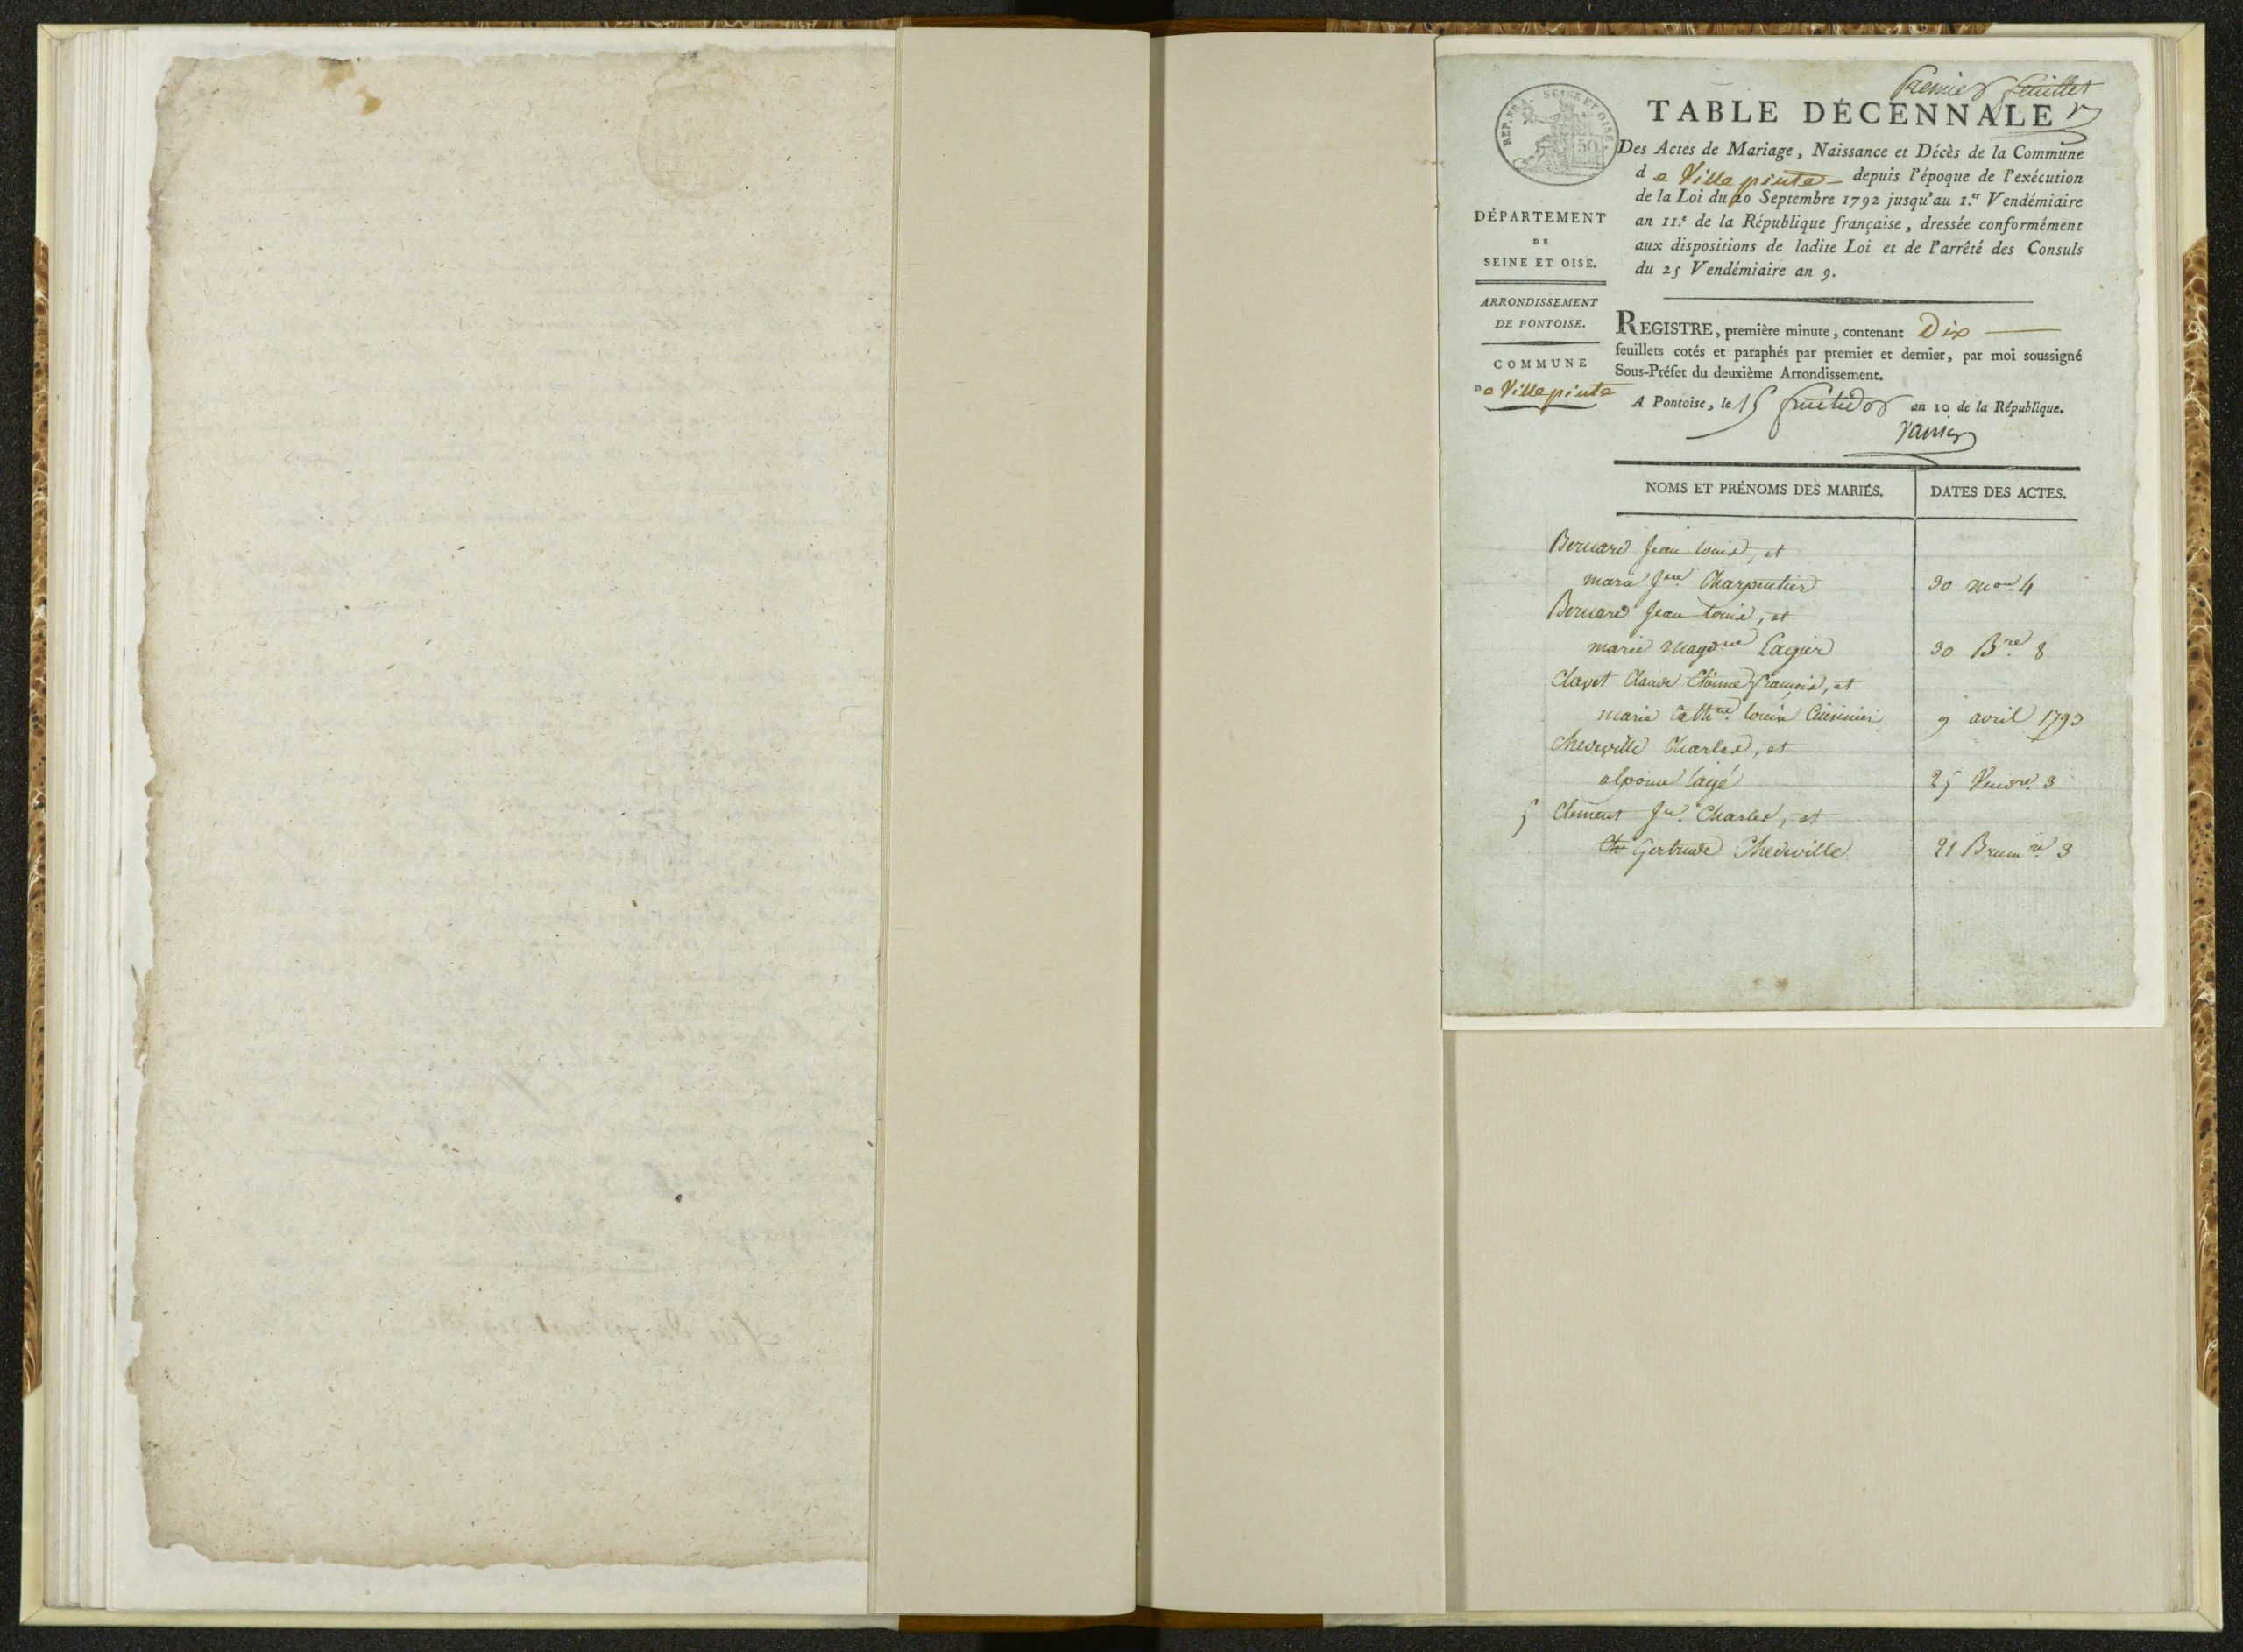 Premier feuillet
REP. FRA. SEINE ET OISE.
50.
TABLE DÉCENNALE
Des Actes de Mariage, Naissance et Décès de la Commune
de Villepinte depuis l'époque de l'exécution
de la Loi du 20 Septembre 1792 jusqu'au 1.er Vendémiaire
an 11.e de la République française, dressée conformément
aux dispositions de ladite Loi et de l'arrêté des Consuls
du 25 Vendémiaire an 9.
DÉPARTEMENT
DE
SEINE ET OISE.
ARRONDISSEMENT
DE PONTOISE.
COMMUNE
De Villepinte
REGISTRE, première minute, contenant Dix
feuillets cotés et paraphés par premier et dernier, par moi soussigné
Sous-Préfet du deuxième Arrondissement.
A Pontoise, le 15 fructidor an 10 de la République.
NOMS ET PRÉNOMS DES MARIÉS. DATES DES ACTES.
Bernard Jean Louis, et
marie Charpentier 30 4
Bernard Jean Louis, et
marie magd.ne 30 B.re 8
Clavet Claude Etienne françois, et
marie Cath.ne louise Cuisinier 9 avril 1793
Chedeville Charles, et
25 Vend.re 3
5 Clement Charles, et
Gertrude Chedeville 21 Brum.re 3